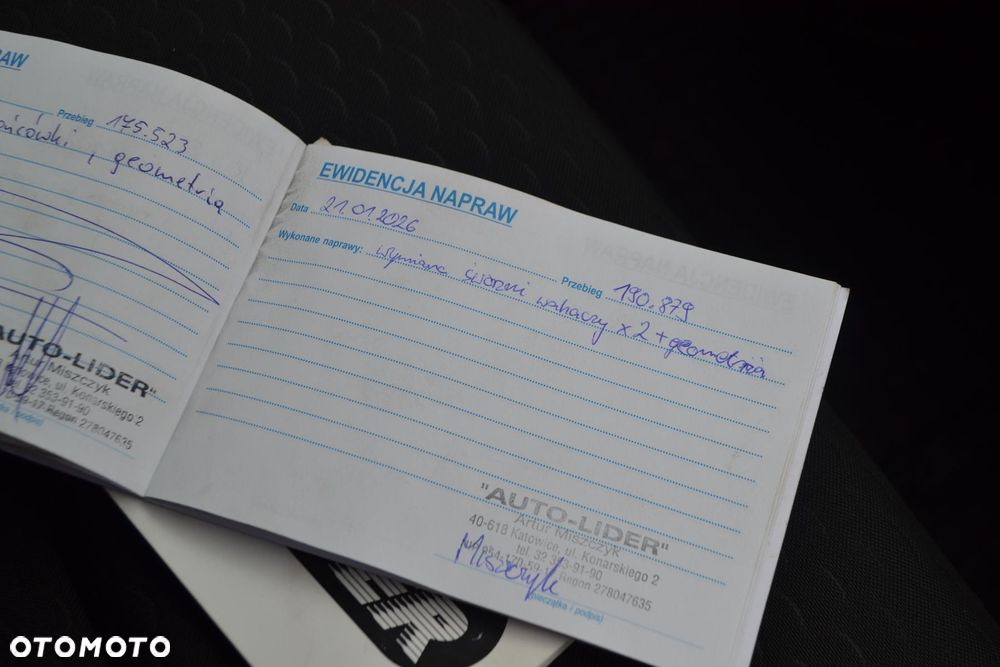 RAW
Przebieg 175.523
ońcówki i geometria
AUTO-LIDER"
Artur Miszczyk
Katowice, ul. Konarskiego 2
tel. 32 353-91-90
Regon 278047635
EWIDENCJA NAPRAW
Data 21.01.2026
Przebieg 190.879
Wykonane naprawy: wymiana sworzni wahaczy x 2 + geometria
"AUTO-LIDER"
Artur Miszczyk
40-618 Katowice, ul. Konarskiego 2
tel. 32 353-91-90
Regon 278047635
Miszczyk
(pieczątka i podpis)
OTOMOTO